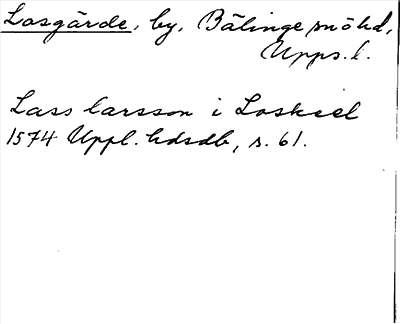 Losgärde, by, Bälinge sn o hd,
Upps. l.
Lass Larsson i Loskeel
1574 Uppl. hdsdb, s. 61.